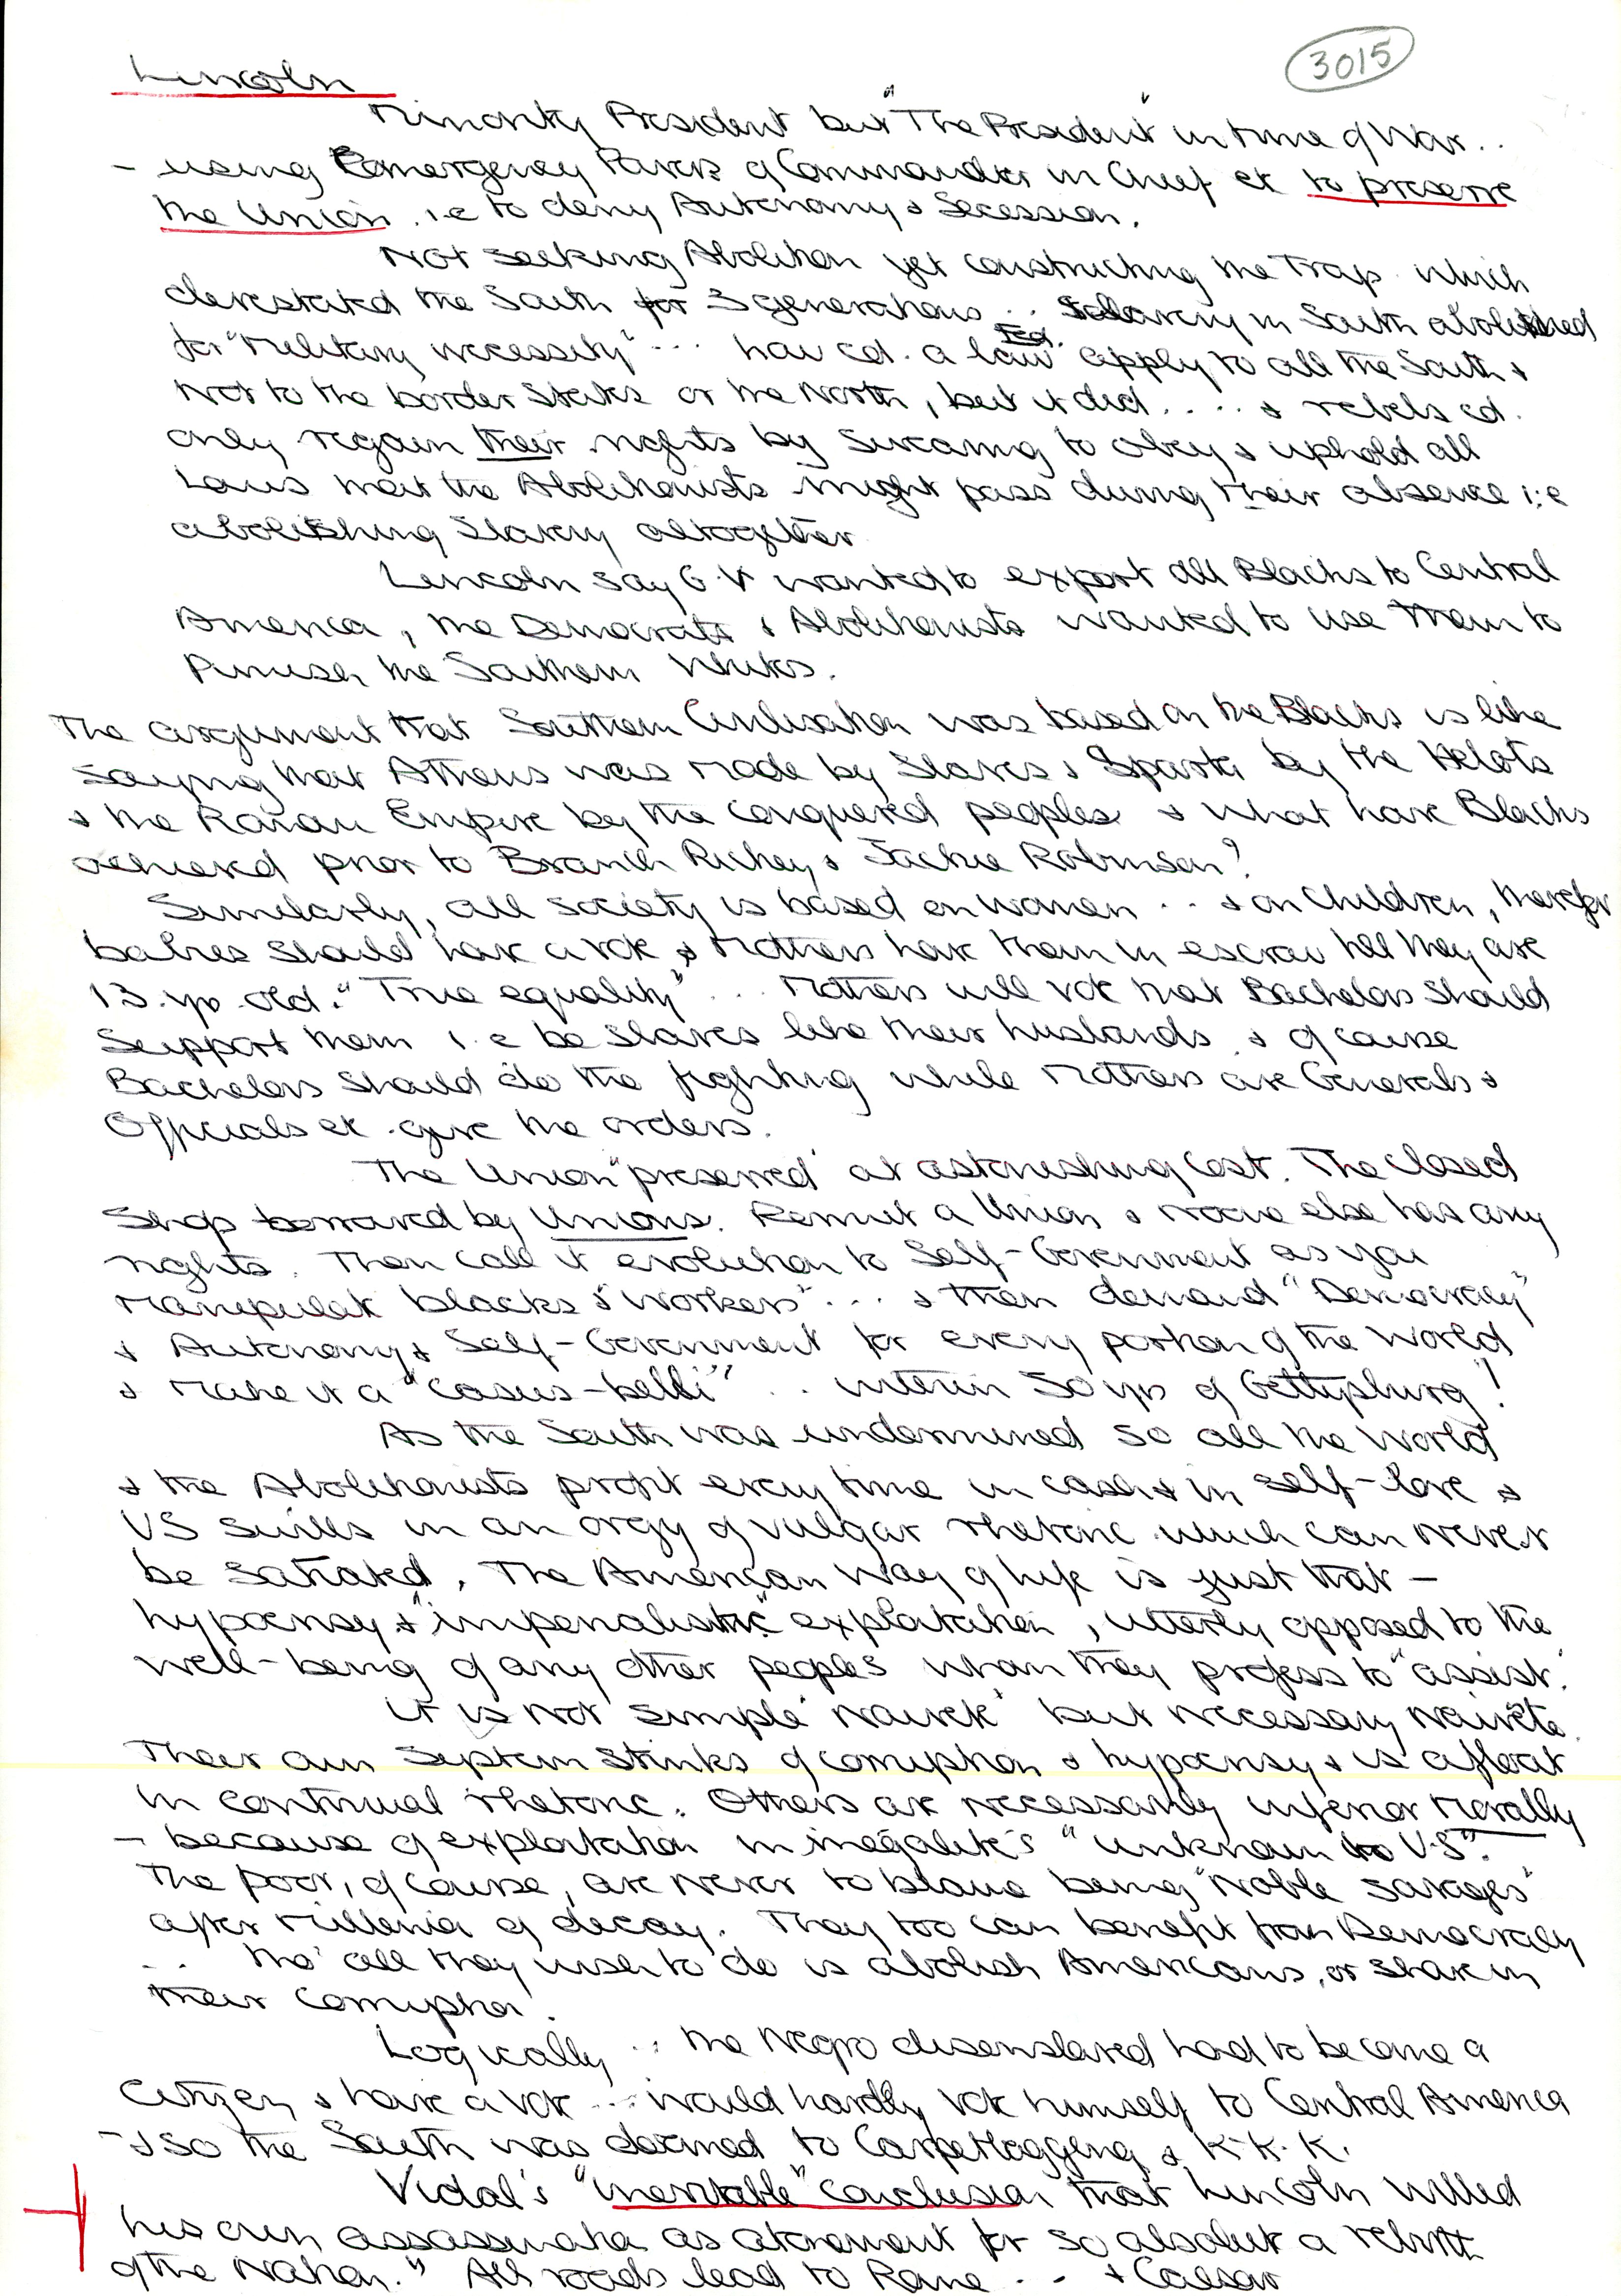 3015
Lincoln
Minority President but "The President" in time of War ..
- using Emergency Powers of Commander in Chief etc to preserve
the Union . i.e to deny Autonomy & Secession.
Not seeking Abolition yet constructing the Trap which
devestated the South for 3 generations ... Slavery in South abolished
for "military necessity" ... how cd. a Fed. law apply to all the South &
not to the border States or the North, but it did .... & rebels cd.
only regain their rights by swearing to obey & uphold all
Laws that the Abolitionists might pass during their absence i:e
abolishing Slavery altogether
Lincoln say G.V wanted to export all Blacks to Central
America, the Democrats & Abolitionists wanted to use them to
Punish the Southern Whites.
The argument that Southern Civilisation was based on the Blacks is like
saying that Athens was made by Slaves & Sparta by the Helots
& the Roman Empire by the conquered peoples & what have Blacks
achieved prior to Branch Rickey & Jackie Robinson?
Similarly, all society is based on women .. & on Children, therefor
babies should have a vote & Mothers have them in escrow till they are
13. yrs. old. "True equality" ... Mothers will vote that Bachelors should
Support them i.e be slaves like their husbands & of course
Bachelors should do the fighting while Mothers are Generals &
Officials etc. give the orders.
The Union "preserved" at astonishing Cost. The Closed
Shop borrowed by Unions. Permit a Union & no one else has any
rights. Then call it evolution to Self-Government as you
manipulate blacks & "workers" ... & then demand "Democracy"
& Autonomy & Self-Government for every portion of the World
& make it a "casus-belli" .. within 50 yrs of Gettysburg!
As the South was undermined so all the World
& the Abolitionists profit every time in cash & in self-love &
US swills in an orgy of vulgar rhetoric which can never
be satiated. The American Way of life is just that -
hypocrisy & "imperialistic" exploitation, utterly opposed to the
well-being of any other peoples whom they profess to "assist".
It is not simple "naivete" but necessary Naivëte.
Their own System stinks of corruption & hypocrisy & is afloat
in continual rhetoric. Others are necessarily inferior Morally
- because of exploitation in inégalités "unknown to U.S".
The poor, of course, are never to blame being "Noble savages"
after Millenia of decay. They too can benefit from Democracy
... tho' all they wish to do is abolish Americans, or share in
their corruption.
Logically .. the Negro disenslaved had to become a
Citizen & have a vote ... would hardly vote himself to Central America
- & so the South was doomed to Carpetbagging & K.K.K.
Vidal's "inevitable" conclusion that Lincoln willed
his own assassination as atonement for so absolute a rebirth
of the Nation." All roads lead to Rome ... & Caesar